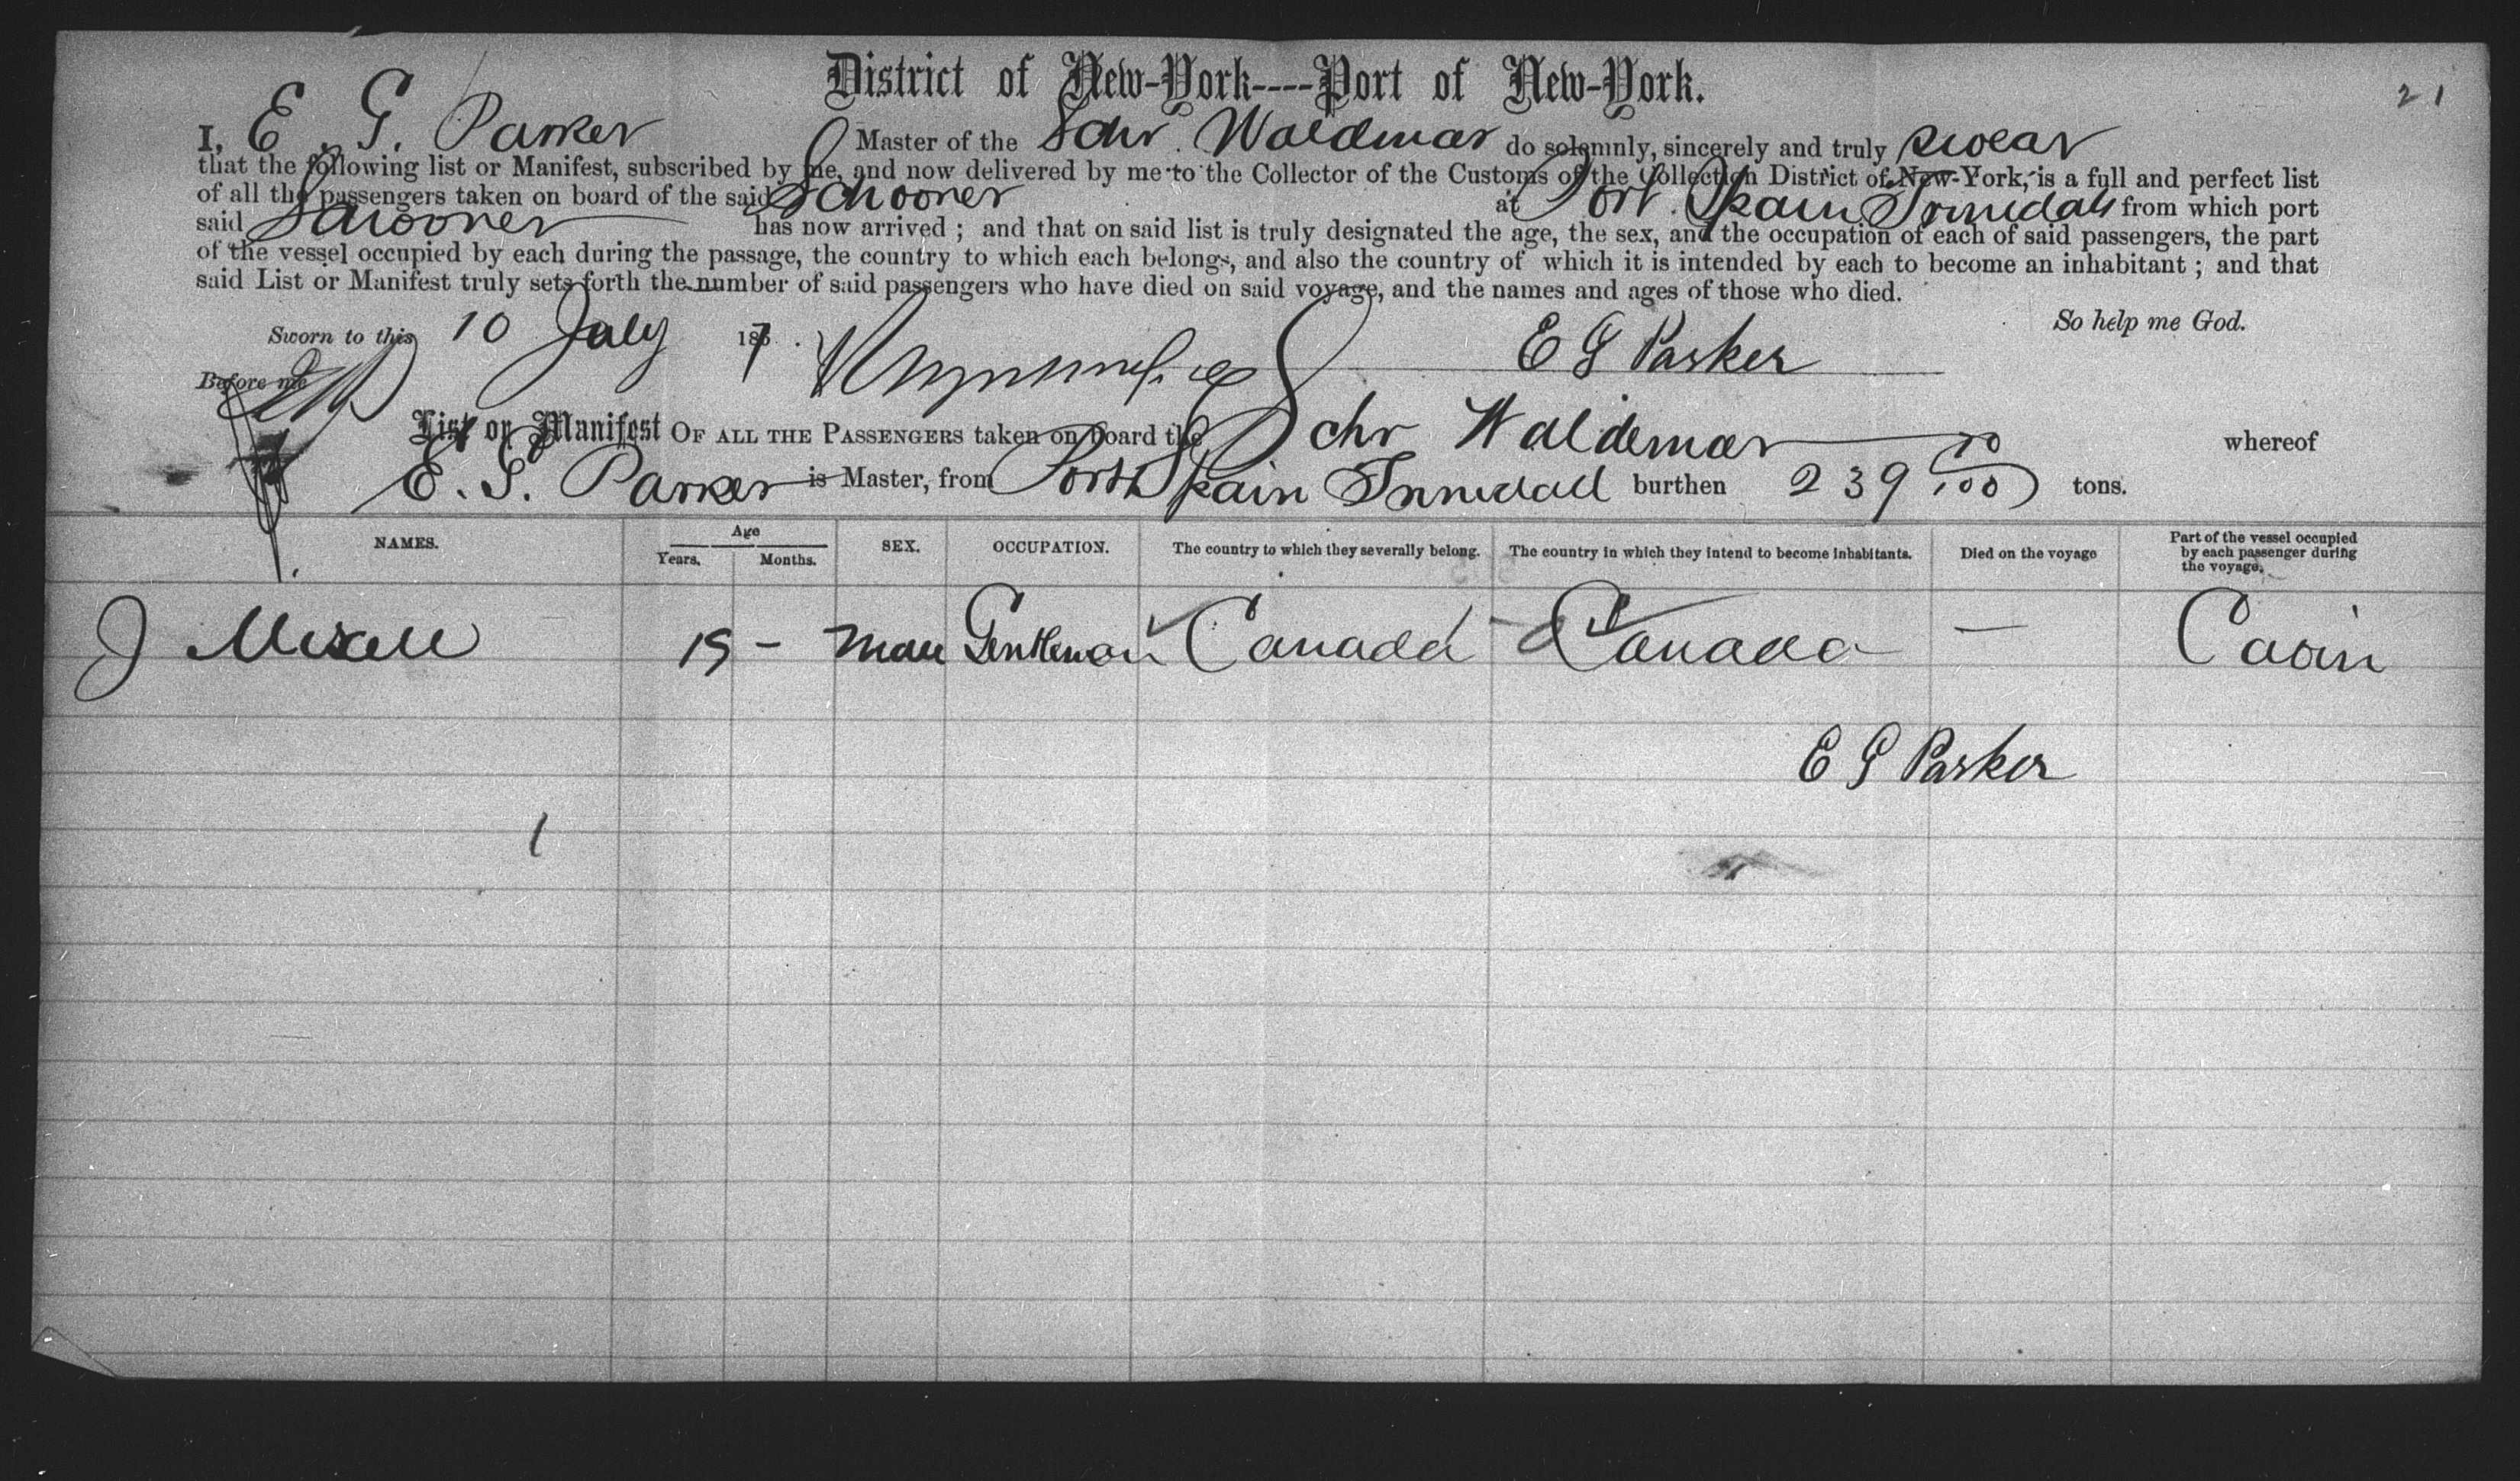 21
District of New-York----Port of New-York.
I, E. G. Parker Master of the Schr. Waldemar do solemnly, sincerely and truly swear
that the following list or Manifest, subscribed by me, and now delivered by me to the Collector of the Customs of the Collection District of New-York, is a full and perfect list
of all the passengers taken on board of the said Schooner at Port Spain Trinidad from which port
said Schooner has now arrived ; and that on said list is truly designated the age, the sex, and the occupation of each of said passengers, the part
of the vessel occupied by each during the passage, the country to which each belongs, and also the country of which it is intended by each to become an inhabitant ; and that
said List or Manifest truly sets forth the number of said passengers who have died on said voyage, and the names and ages of those who died.
So help me God.
Sworn to this 10 July 187 E G Parker
Before me
List or Manifest OF ALL THE PASSENGERS taken on board the Schr Waldemar whereof
E. G. Parker is Master, from Port Spain Trinidad burthen 239 70/100 tons.
NAMES. Age Years. Months. SEX. OCCUPATION. The country to which they severally belong. The country in which they intend to become inhabitants. Died on the voyage Part of the vessel occupied by each passenger during the voyage.
J 19 - Male Gentleman Canada Canada — Cabin
E G Parker
1